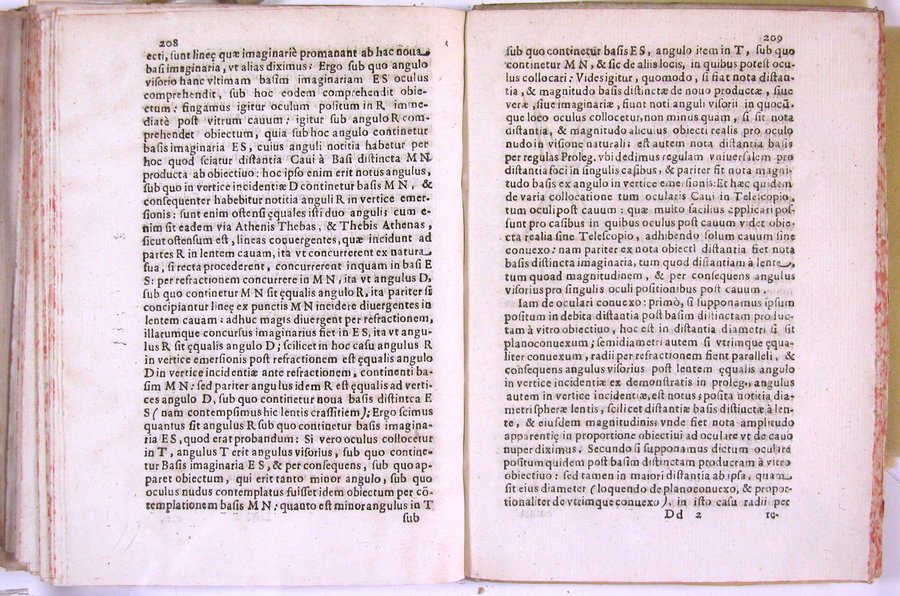 208
ecti, sunt lineę quæ imaginariè promanant ab hac noua
basi imaginaria, vt alias diximus: Ergo sub quo angulo
visorio hanc vltimam basim imaginariam ES oculus
comprehendit, sub hoc eodem comprehendit obie-
ctum: fingamus igitur oculum positum in R imme-
diatè post vitrum cauum: igitur sub angulo R com-
prehendet obiectum, quia sub hoc angulo continetur
basis imaginaria ES, cuius anguli notitia habetur per
hoc quod sciatur distantia Caui à Basi distincta MN
producta ab obiectiuo: hoc ipso enim erit notus angulus,
sub quo in vertice incidentiæ D continetur basis MN, &
consequenter habebitur notitia anguli R in vertice emer-
sionis: sunt enim ostensi ęquales isti duo anguli; cum e-
nim sit eadem via Athenis Thebas, & Thebis Athenas,
sicut ostensum est, lineas coquergentes, quæ incidunt ad
partes R in lentem cauam, ita vt concurrerent ex natura
sua, si recta procederent, concurrerent inquam in basi E
S: per refractionem concurrere in MN, ita vt angulus D,
sub quo continetur MN sit ęqualis angulo R, ita pariter si
concipiantur lineę ex punctis MN incidere diuergentes in
lentem cauam: adhuc magis diuergent per refractionem,
illarumque concursus imaginarius fiet in ES, ita vt angu-
lus R sit ęqualis angulo D; scilicet in hoc casu angulus R
in vertice emersionis post refractionem est ęqualis angulo
D in vertice incidentiæ ante refractionem, continenti ba-
sim MN: sed pariter angulus idem R est ęqualis ad verti-
ces angulo D, sub quo continetur noua basis distincta E
S (nam contempsimus hic lentis crassitiem); Ergo scimus
quantus sit angulus R sub quo continetur basis imagina-
ria ES, quod erat probandum: Si vero oculus collocetur
in T, angulus T erit angulus visorius, sub quo contine-
tur Basis imaginaria ES, & per consequens, sub quo ap-
paret obiectum, qui erit tanto minor angulo, sub quo
oculus nudus contemplatus fuisset idem obiectum per cō-
templationem basis MN: quanto est minor angulus in T
sub
209
sub quo continetur basis ES, angulo item in T, sub quo
continetur MN, & sic de aliis locis, in quibus potest ocu-
lus collocari: Vides igitur, quomodo, si fiat nota distan-
tia, & magnitudo basis distinctæ de nouo productæ, siue
veræ, siue imaginariæ, fiunt noti anguli visorii in quocū-
que loco oculus collocetur, non minus quam, si sit nota
distantia, & magnitudo alicuius obiecti realis pro oculo
nudo in visione naturali: est autem nota distantia basis
per regulas Proleg. vbi dedimus regulam vniuersalem pro
distantia foci in singulis casibus, & pariter fit nota magni-
tudo basis ex angulo in vertice emersionis: Et hæc quidem
de varia collocatione tum ocularis Caui in Telescopio,
tum oculi post cauum: quæ multo facilius applicari pos-
sunt pro casibus in quibus oculus post cauum videt obie-
cta realia sine Telescopio, adhibendo solum cauum sine
conuexo: nam pariter ex nota obiecti distantia fiet nota
basis distincta imaginaria, tum quod distantiam à lente,
tum quoad magnitudinem, & per consequens angulus
visorius pro singulis oculi positionibus post cauum.
Iam de oculari conuexo: primò, si supponamus ipsum
positum in debita distantia post basim distinctam produc-
tam à vitro obiectiuo, hoc est in distantia diametri si sit
planoconuexum; semidiametri autem si vtrimque ęqua-
liter conuexum, radii per refractionem fient paralleli, &
consequens angulus visorius post lentem ęqualis angulo
in vertice incidentiæ ex demonstratis in proleg. angulus
autem in vertice incidentiæ, est notus, posita notitia dia-
metri spheræ lentis, scilicet distantiæ basis distinctæ à len-
te, & eiusdem magnitudinis; vnde fiet nota amplitudo
apparentię in proportione obiectiui ad oculare vt de cauo
nuper diximus. Secundo si supponamus dictum oculare
positum quidem post basim distinctam productam à vitro
obiectiuo: sed tamen in maiori distantia ab ipsa, quam
sit eius diameter (loquendo de planoconuexo, & propor-
tionaliter de vtrimque conuexo), in isto casu radii per
Dd 2 re-